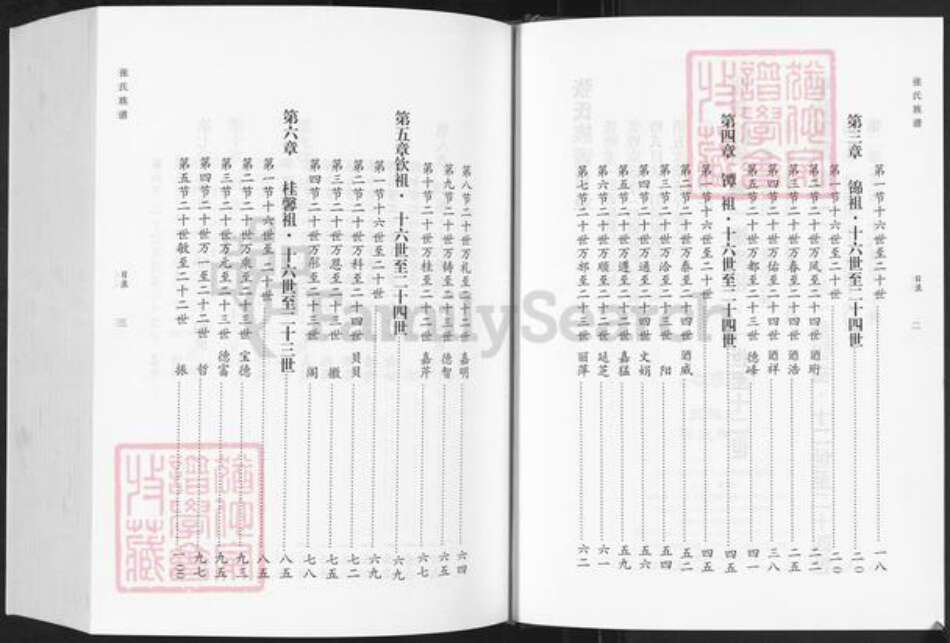 张氏族谱
目录
二
第一节十六世至二十世 一八
第三章 锦祖·十六世至二十四世 二〇
第一节十六世至二十世 二〇
第二节二十世万凤至二十四世 迺珩 二二
第三节二十世万春至二十四世 迺浩 二五
第四节二十世万佑至二十四世 迺祥 三八
第五节二十世万都至二十三世 德峰 四一
第四章 谭祖·十六世至二十四世 四五
第一节十六世至二十世 四五
第二节二十世万泰至二十四世 迺威 五二
第三节二十世万洽至二十三世 阳 五四
第四节二十世万通至二十四世 文娟 五六
第五节二十世万遵至二十三世 嘉猛 五九
第六节二十世万顺至二十三世 延芝 六一
第七节二十世万邦至二十三世 丽萍 六二
张氏族谱
目录
三
第八节二十世万礼至二十三世 嘉明 六四
第九节二十世万铸至二十三世 德智 六五
第十节二十世万桂至二十三世 嘉芹 六七
第五章钦祖·十六世至二十四世 六九
第一节十六世至二十世 六九
第二节二十世万科至二十四世 贝贝 七二
第三节二十世万恩至二十三世 徽 七七
第四节二十世万彤至二十三世 阔 七八
第六章 桂馨祖·十六世至二十三世 八五
第一节十六世至二十世 八五
第二节二十世万乘至二十三世 宝德 九三
第三节二十世万元至二十三世 德富 九五
第四节二十世万一至二十二世 哲 九七
第五节二十世敏至二十二世 振 一〇〇
FamilySearch